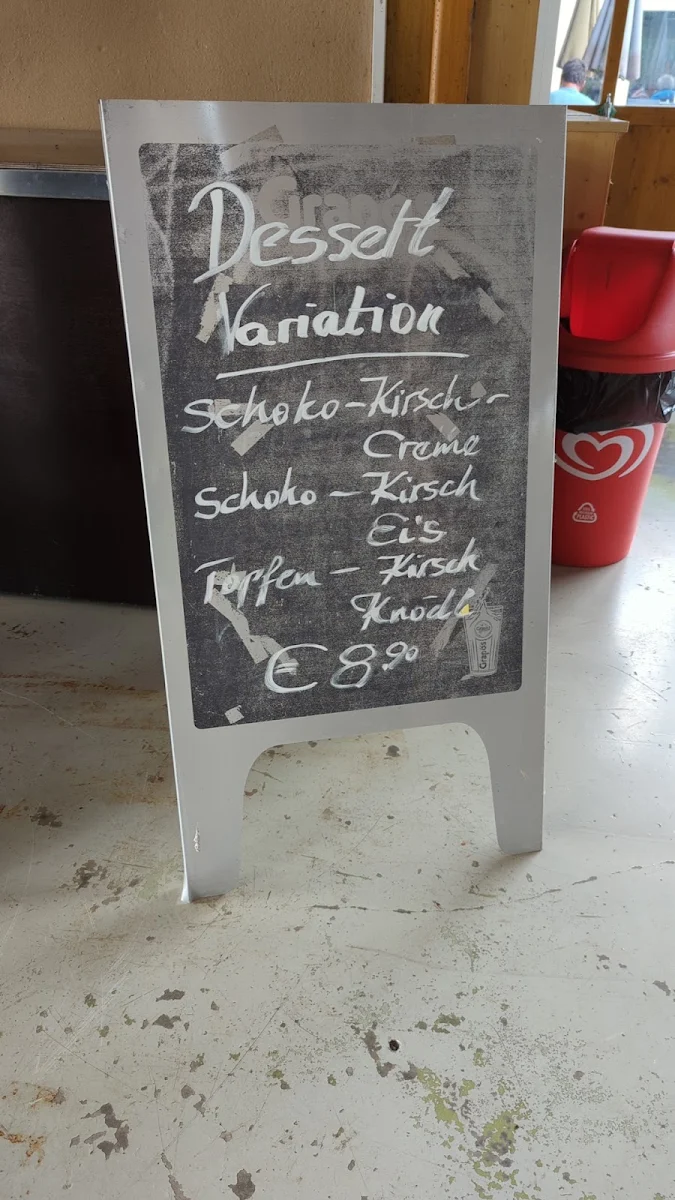 Grapos
Dessert
Variation
Schoko-Kirsch-
Creme
Schoko - Kirsch
Eis
Topfen - Kirsch
Knödl
€ 8,90
Grapos